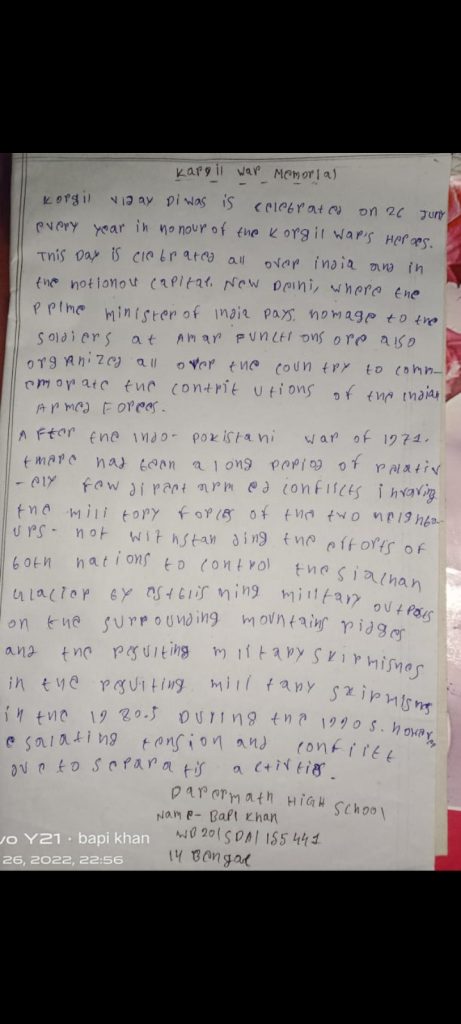 Kargil War Memorial
Korgil vijay Diwas is celebrated on 26 July
every year in honour of the Korgil War's Heroes.
This Day is clebrated all over india and in
the notionou capital, New Delhi, where the
prime minister of India pays homage to the
soldiers at Amar Functions ore also
organized all over the country to comm-
emorate the contrit utions of the indian
Armed Forces.
After the indo-pokistani war of 1971.
there had teen a long period of relativ
-ely few direct armed conflicts invaving
the mili tory forces of the two neighba-
urs- not withstan ding the efforts of
both nations to control the siachan
Glacier by establis hing military outposts
on the surrounding mountains ridges
and the resulting military skirmishes
in the resulting military skirmishes
in the 1980.s During the 1990s. however
esalating tension and conflict
due to separatis activties.
Darermath High School
Name- Bapi Khan
WD20/SDA/155441
14 Bengal
vo Y21 · bapi khan
26, 2022, 22:56